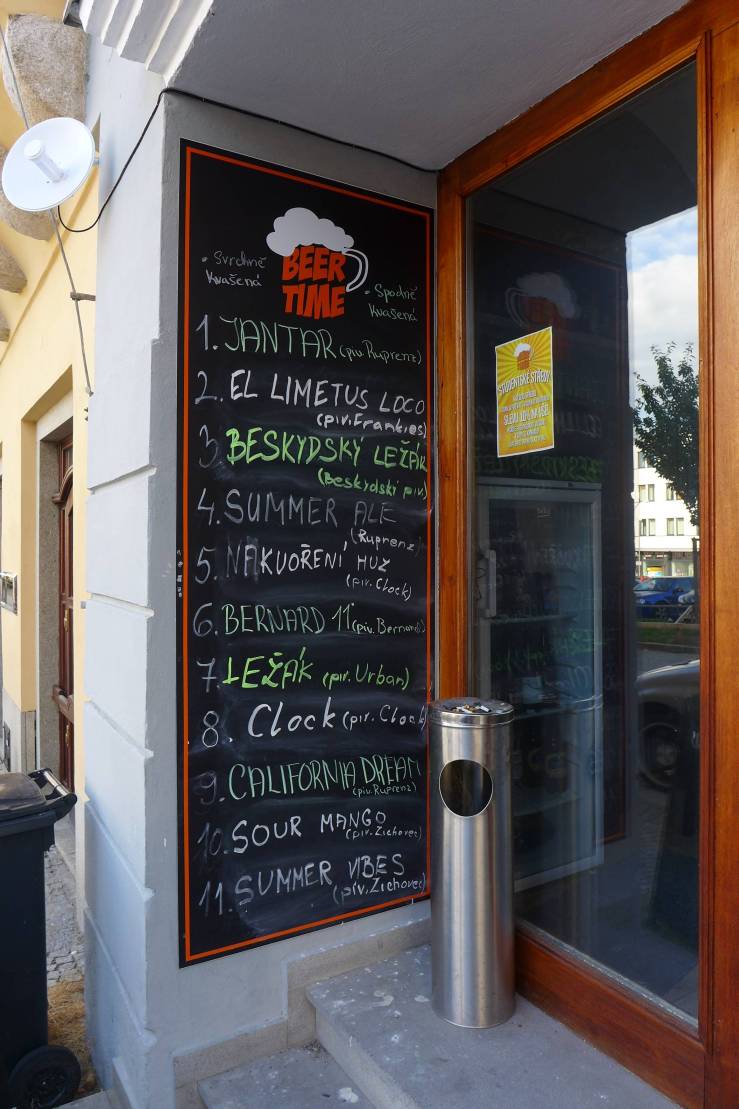 BEER
TIME
• Svrchně
kvašená
• Spodně
kvašená
1. JANTAR (piv. Ruprenz)
2. EL LIMETUS LOCO
(piv. Frankies)
3. BESKYDSKÝ LEŽÁK
(Beskydský piv)
4. SUMMER ALE
(Ruprenz)
5. NAKUOŘENÍ HUZ
(piv. Clock)
6. BERNARD 11° (piv. Bernard)
7. LEŽÁK (piv. Urban)
8. Clock (piv. Clock)
9. CALIFORNIA DREAM
(piv. Ruprenz)
10. SOUR MANGO
(piv. Zichovec)
11. SUMMER VIBES
(piv. Zichovec)
STUDENTSKÉ STŘEDY
SLEVU 10% NA VŠE